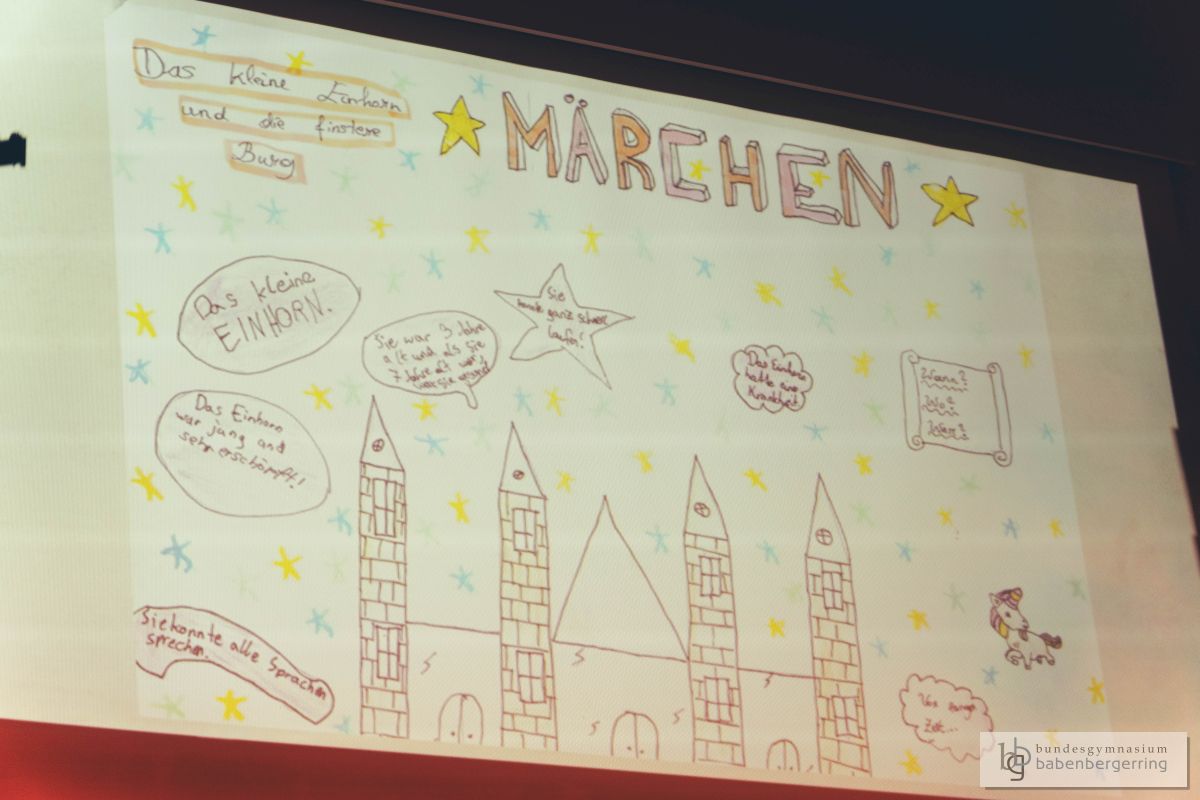 Das kleine Einhorn
und die finstere
Burg
MÄRCHEN
Das kleine
EINHORN.
Sie war 3 Jahre
alt und als sie
7 Jahre alt war,
war sie
Sie
konnte ganz schnell
laufen!
Das Einhorn
hatte eine
Krankheit
Wann?
Wo?
Wer?
Das Einhorn
war jung und
sehr erschöpft!
Sie konnte alle Sprachen
sprechen.
Vor
Zeit...
bg
bundesgymnasium
babenbergerring